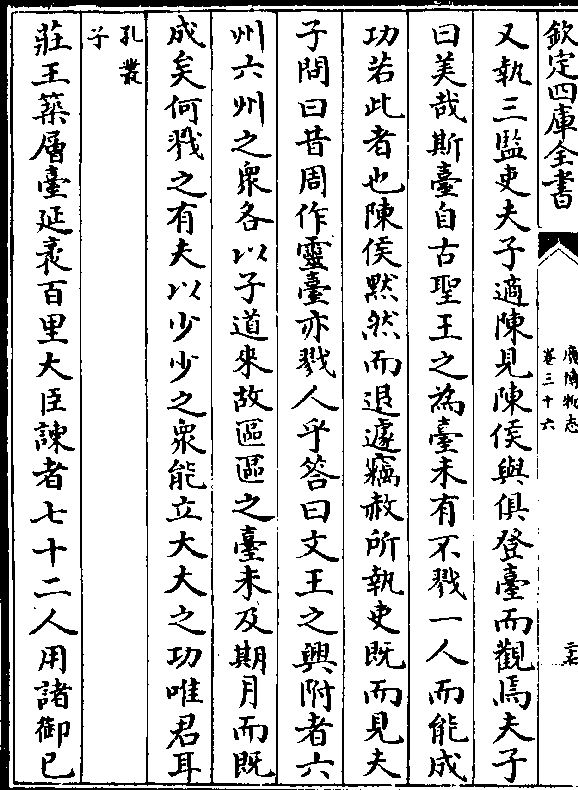 欽定四庫全書
廣博物志
卷三十六
又執三監吏夫子適陳見陳侯與俱登臺而觀焉夫子
曰美哉斯臺自古聖王之為臺未有不戮一人而能成
功若此者也陳侯黙然而退遽竊赦所執吏既而見夫
子問曰昔周作靈臺亦戮人乎答曰文王之興附者六
州六州之衆各以子道來故區區之臺未及期月而既
成矣何戮之有夫以少少之衆能立大大之功唯君耳
孔叢
子
莊王築層臺延袤百里大臣諫者七十二人用諸御已